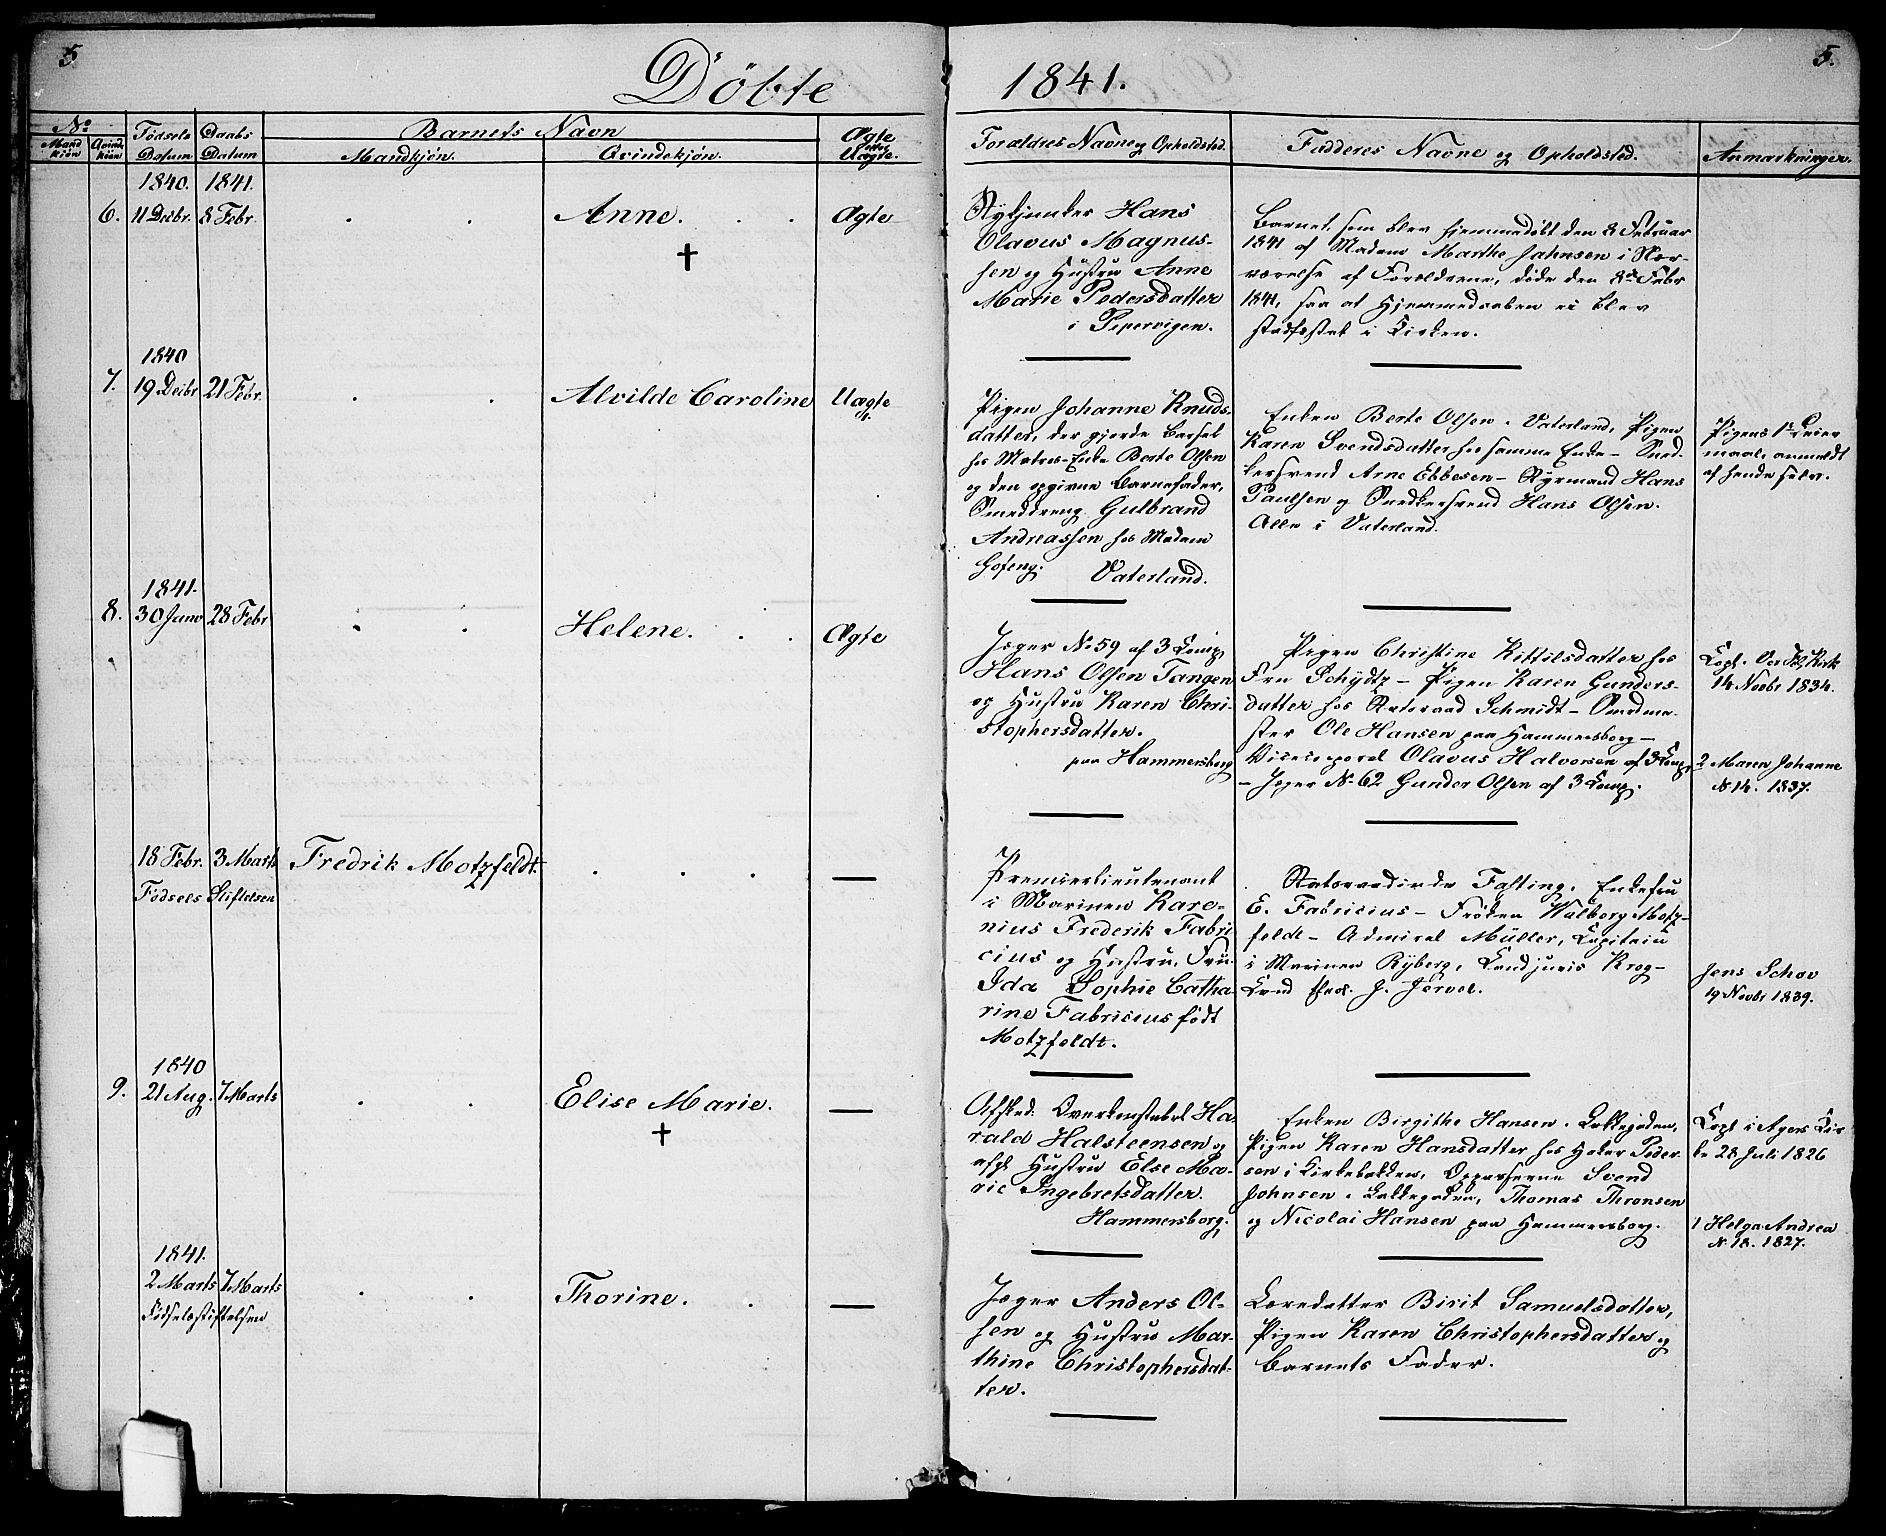 5
5.
Döbte
1841.
No
Födsels
Daabs
Barnets Navn
Ægte
eller
Uægte.
Mand
kjön
Qvinde
kjön
Datum
Datum
Mandkjön.
Qvindekjön.
Forældres Navne og Opholdsted.
Fadderes Navne og Opholdsted.
Anmærkninger.
1840. 1841.
6. 11 Decbr. 8 Febr. Anne. Ægte
Hans
Olavus Magnus-
sen og Hustru Anne
Marie Pedersdatter
i Pipervigen.
Barnet, som blev hjemmedöbt den 8 Februar
1841 af Madam Marthe Jahnsen i Nær-
værelse af Forældrene, döde den 8de Febr
1841, saa at Hjemmedaaben ei blev
stadfæstet i Kirken.
1840
7. 19 Decbr 21 Febr. Alvilde Caroline Uægte
Pigen Johanne Knuds-
datter, der gjorde Barsel
hos Enke Berte Olsen
og den opgivne Barnefader,
Smeddreng Gulbrand
Andreassen hos Madam
Vaterland.
Enken Berte Olsen i Vaterland, Pigen
Karen Svendsdatter hos samme Enke – Sned-
kersvend Arne Ebbesen – Styrmand Hans
Paulsen og Snedkersvend Hans Olsen.
Alle i Vaterland.
Pigens 1ste Leier
maal, anmeldt
af hende selv.
1841.
8. 30 Janv 28 Febr Helene. Ægte
Jæger No 59 af 3 Comp.
Hans Olsen Tangen
og Hustru Karen Chri-
stophersdatter.
paa Hammersborg
Pigen Christine Kittilsdatter hos
Fru Schydtz – Pigen Karen Gunders-
datter hos Statsraad Schmidt – Smedme-
ster Ole Hansen paa Hammersborg –
Vicecorporal Olavus Halvorsen af 3 Comp.
– Jæger No 62 Gunder Olsen af 3 Comp.
Copl. Kirk
14 Novbr 1834.
2 Maren Johanne
No 14. 1837.
18 Febr. 3 Marts Fredrik Motzfeldt. —
Födsels Stiftelsen
Premierlieutenant
i Marinen Karo-
nius Frederik Fabri-
cius og Hustru, Fru
Ida Sophie Catha-
rine Fabricius födt
Motzfeldt.
Statsraadinde Fasting, Enkefru
E. Fabricius – Fröken Walborg Motz-
feldt – Admiral Müller, Capitain
i Marinen Ryberg, Candjuris Krog –
Cand theol. J. Jörvel.
Jens Schov
19 Novbr 1839.
1840
9. 21 Aug. 7 Marts Elise Marie. —
Afsked. Overkonstabel Ha-
rald Halsteensen og
afgl Hustru Else Ma-
rie Ingebretsdatter.
Hammersborg.
Enken Birgithe Hansen i Lakkegaden,
Pigen Karen Hansdatter hos Høker Peder-
sen i Kirkebakken, Svend
Johnsen i Lakkegaden, Thomas Thronsen
og Nicolai Hansen paa Hammersborg.
Copl i Agers Kir-
ke 28 Juli 1826
1 Helga Andrea
No 18. 1827.
1841.
2 Marts 7 Marts Thorine. —
Födselsstiftelsen
Jæger Anders Ol-
sen og Hustru Mar-
thine Christophersdat-
ter.
Læredatter Birit Samuelsdatter,
Pigen Karen Christophersdatter og
Barnets Fader.